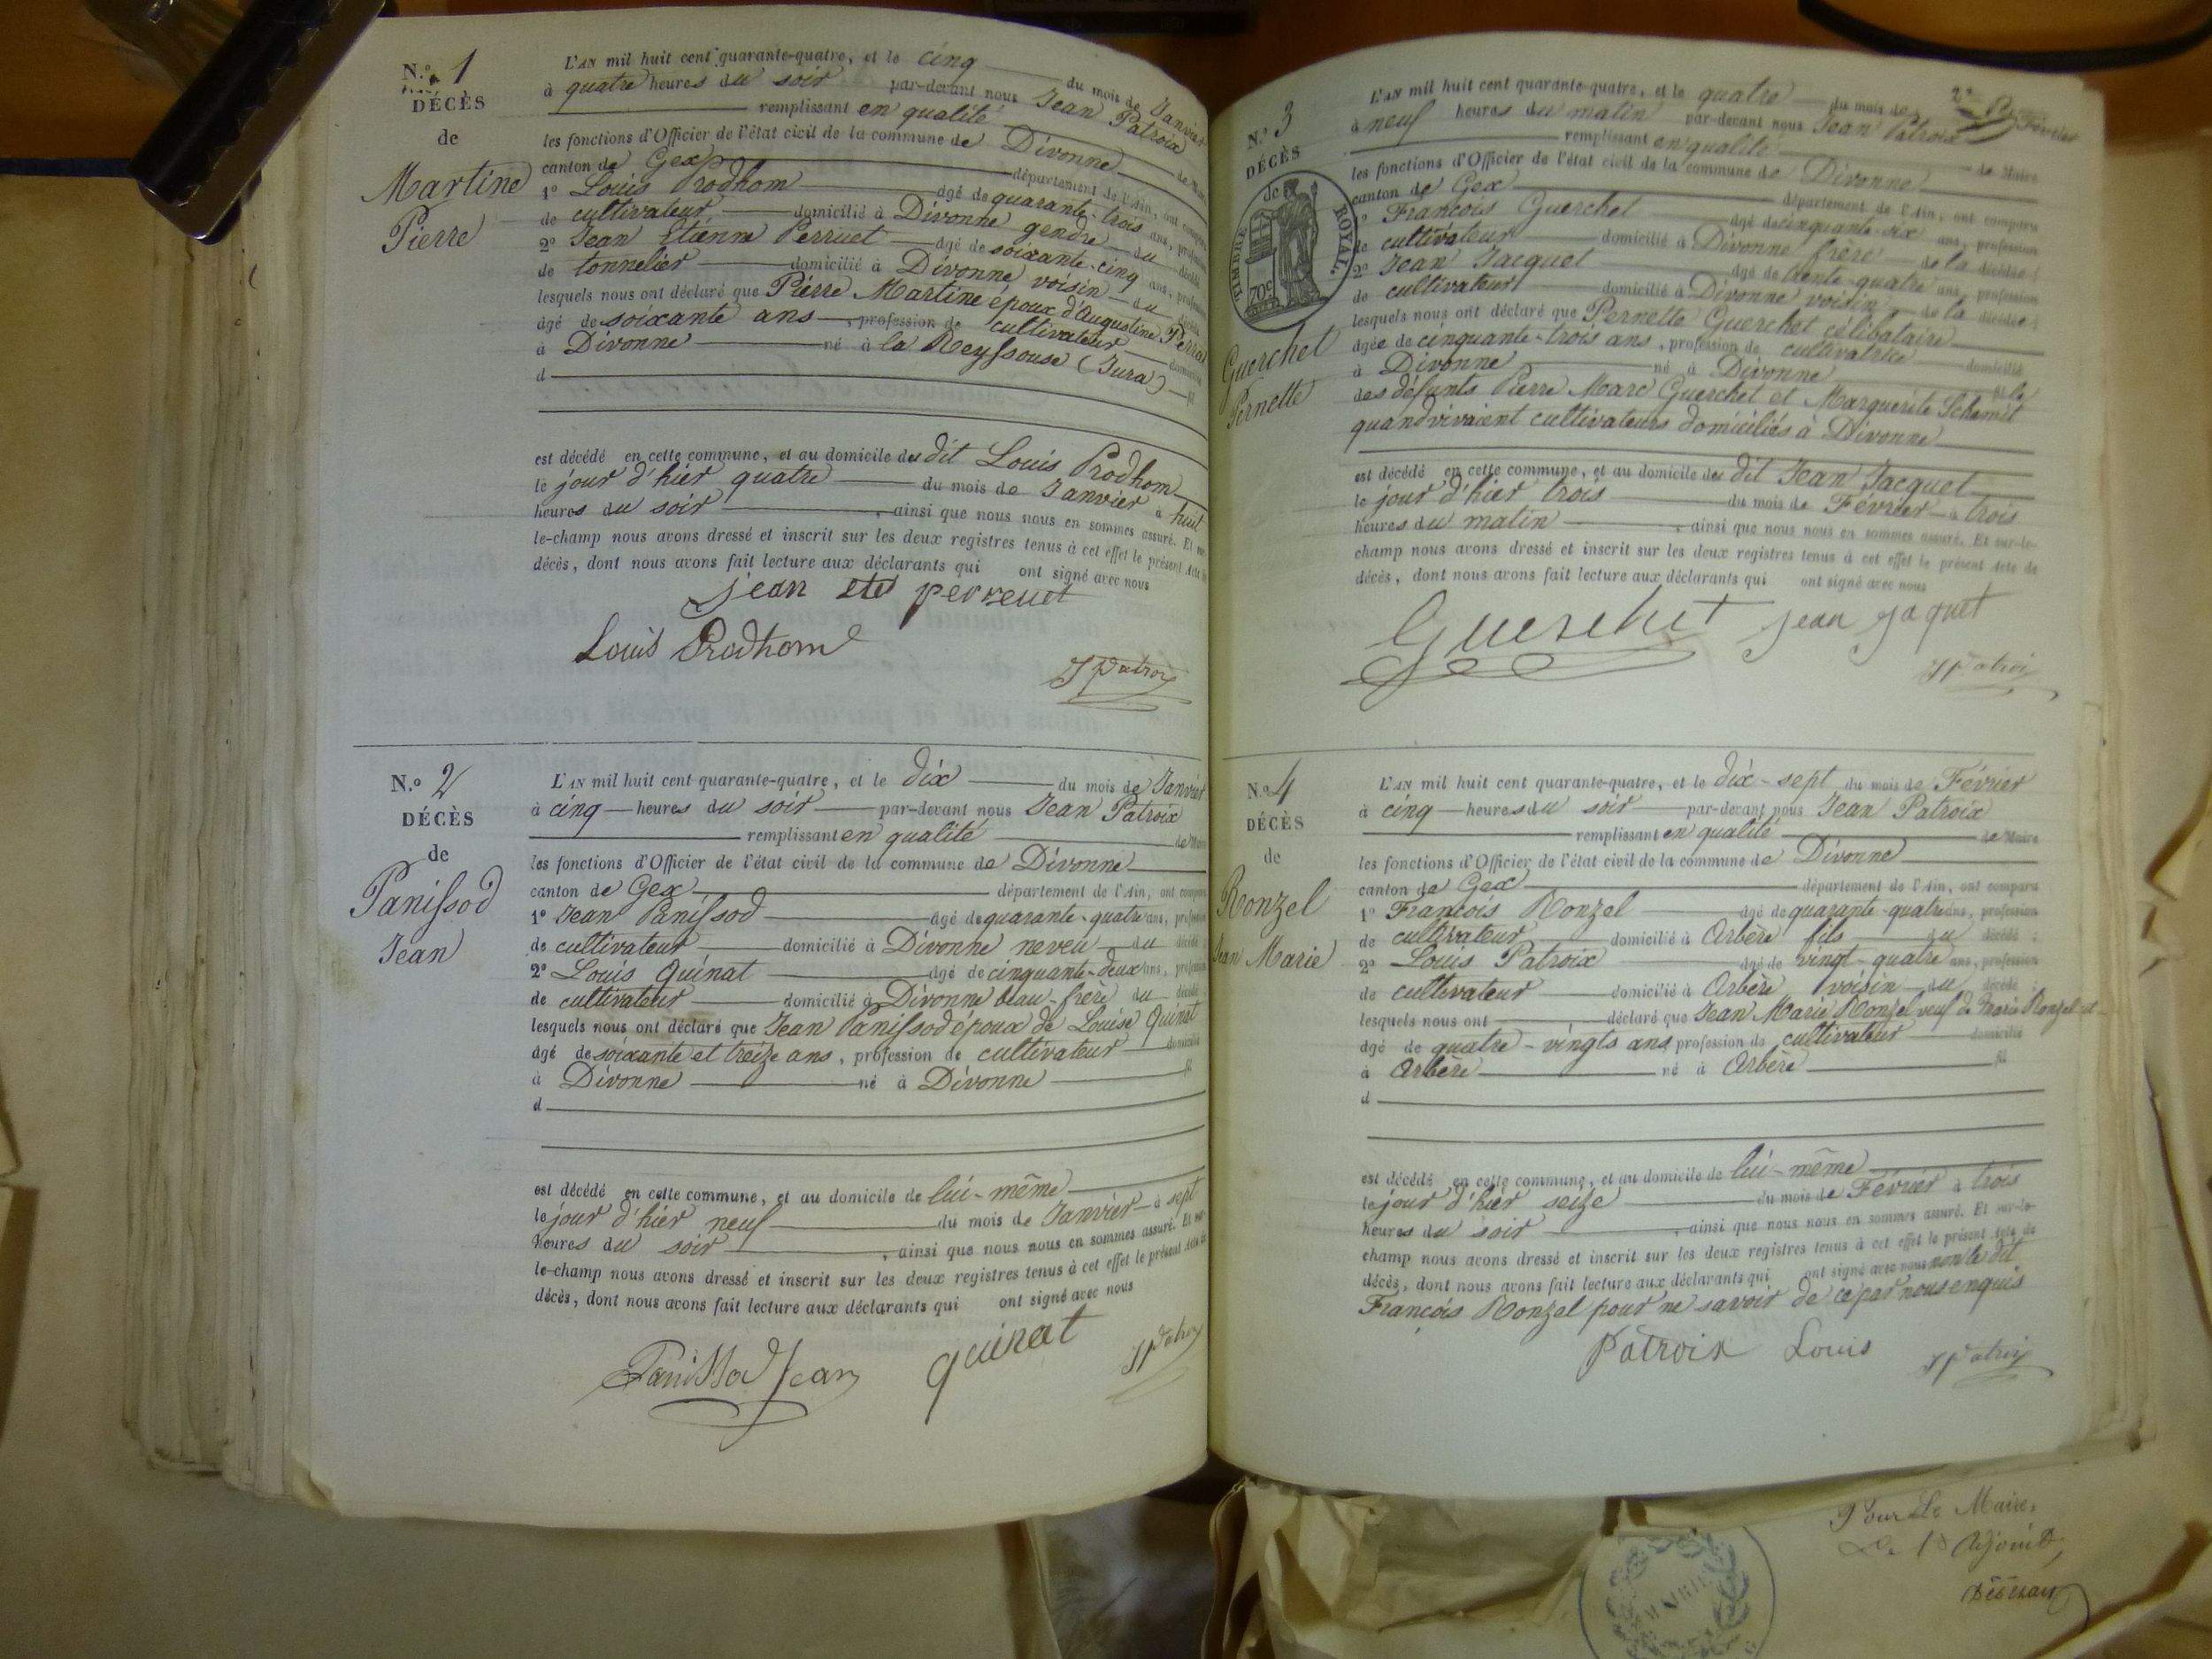 N.º 1
DÉCÈS
de
Martine
Pierre
L'AN mil huit cent quarante-quatre, et le cinq du mois de Janvier
à quatre heures du soir par-devant nous Jean Patroix
remplissant en qualité de Maire
les fonctions d'Officier de l'état civil de la commune de Divonne
canton de Gex département de l'Ain, ont comparu
1º Louis Prodhom âgé de quarante-trois ans, profession
de cultivateur domicilié à Divonne gendre du décédé
2º Jean Étienne Perruet âgé de soixante-cinq ans, profession
de tonnelier domicilié à Divonne voisin du décédé
lesquels nous ont déclaré que Pierre Martine époux d'Augustine Perral
âgé de soixante ans, profession de cultivateur domicilié
à Divonne né à la Reyssouse (Jura) fil
d
est décédé en cette commune, et au domicile du dit Louis Prodhom
le jour d'hier quatre du mois de Janvier à huit
heures du soir, ainsi que nous nous en sommes assuré. Et sur-
le-champ nous avons dressé et inscrit sur les deux registres tenus à cet effet le présent Acte de
décès, dont nous avons fait lecture aux déclarants qui ont signé avec nous
jean ete perreuet
Louis Prodhom
J Patroix
N.º 2
DÉCÈS
de
Panissod
Jean
L'AN mil huit cent quarante-quatre, et le dix du mois de Janvier
à cinq heures du soir par-devant nous Jean Patroix
remplissant en qualité de Maire
les fonctions d'Officier de l'état civil de la commune de Divonne
canton de Gex département de l'Ain, ont comparu
1º Jean Panissod âgé de quarante-quatre ans, profession
de cultivateur domicilié à Divonne neveu du décédé
2º Louis Quinat âgé de cinquante-deux ans, profession
de cultivateur domicilié à Divonne beau-frère du décédé
lesquels nous ont déclaré que Jean Panissod époux de Louise Quinat
âgé de soixante et treize ans, profession de cultivateur domicilié
à Divonne né à Divonne fil
d
est décédé en cette commune, et au domicile de lui-même
le jour d'hier neuf du mois de Janvier à sept
heures du soir, ainsi que nous nous en sommes assuré. Et sur-
le-champ nous avons dressé et inscrit sur les deux registres tenus à cet effet le présent Acte de
décès, dont nous avons fait lecture aux déclarants qui ont signé avec nous
Panissod Jean quinat J Patroix
2e
N.º 3
DÉCÈS
de
TIMBRE ROYAL.
70c
Guerchet
Pernette
L'AN mil huit cent quarante-quatre, et le quatre du mois de Février
à neuf heures du matin par-devant nous Jean Patroix
remplissant en qualité de Maire
les fonctions d'Officier de l'état civil de la commune de Divonne
canton de Gex département de l'Ain, ont comparu
1º François Guerchet âgé de cinquante-six ans, profession
de cultivateur domicilié à Divonne frère de la décédée;
2º Jean Jacquet âgé de trente-quatre ans, profession
de cultivateur domicilié à Divonne voisin de la décédée;
lesquels nous ont déclaré que Pernette Guerchet célibataire
âgée de cinquante-trois ans, profession de cultivatrice domicilié
à Divonne né à Divonne fille
des défunts Pierre Marc Guerchet et Marguerite Schemit
quand vivaient cultivateurs domiciliés à Divonne
est décédé en cette commune, et au domicile du dit Jean Jacquet
le jour d'hier trois du mois de Février à trois
heures du matin, ainsi que nous nous en sommes assuré. Et sur-le-
champ nous avons dressé et inscrit sur les deux registres tenus à cet effet le présent Acte de
décès, dont nous avons fait lecture aux déclarants qui ont signé avec nous
Guerchet jean jaquet
J Patroix
N.º 4
DÉCÈS
de
Ronzel
Jean Marie
L'AN mil huit cent quarante-quatre, et le dix-sept du mois de Février
à cinq heures du soir par-devant nous Jean Patroix
remplissant en qualité de Maire
les fonctions d'Officier de l'état civil de la commune de Divonne
canton de Gex département de l'Ain, ont comparu
1º François Ronzel âgé de quarante-quatre ans, profession
de cultivateur domicilié à Arbère fils du décédé;
2º Louis Patroix âgé de vingt-quatre ans, profession
de cultivateur domicilié à Arbère voisin du décédé;
lesquels nous ont déclaré que Jean Marie Ronzel veuf de Marie Ronzel
âgé de quatre-vingts ans, profession de cultivateur domicilié
à Arbère né à Arbère fil
d
est décédé en cette commune, et au domicile de lui-même
le jour d'hier seize du mois de Février à trois
heures du soir, ainsi que nous nous en sommes assuré. Et sur-le-
champ nous avons dressé et inscrit sur les deux registres tenus à cet effet le présent Acte de
décès, dont nous avons fait lecture aux déclarants qui ont signé avec nous non le dit
François Ronzel pour ne savoir de ce par nous enquis
Patroix Louis J Patroix
Pour Le Maire,
L'Adjoint,
MAIRIE